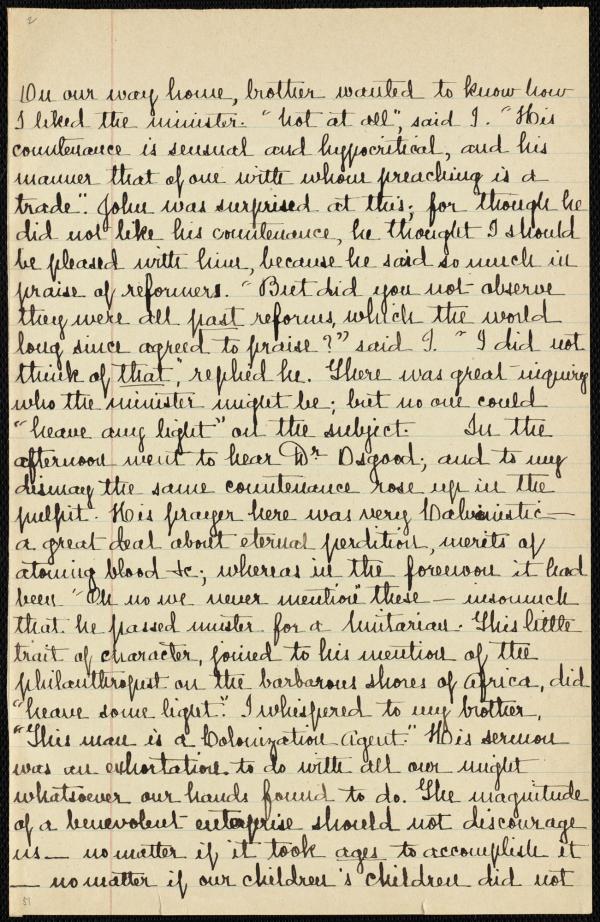 2
On our way home, brother wanted to know how
I liked the minister. "Not at all", said I. "His
countenance is sensual and hypocritical, and his
manner that of one with whom preaching is a
trade". John was surprised at this; for though he
did not like his countenance, he thought I should
be pleased with him, because he said so much in
praise of reformers. "But did you not observe
they were all past reforms, which the world
long since agreed to praise?" said I. "I did not
think of that", replied he. There was great inquiry
who the minister might be; but no one could
"heave any light" on the subject. In the
afternoon went to hear Dr Osgood; and to my
dismay the same countenance rose up in the
pulpit. His prayer here was very Calvinistic —
a great deal about eternal perdition, merits of
atoning blood &c; whereas in the forenoon it had
been "Oh no we never mention" these — insomuch
that he passed muster for a Unitarian. This little
trait of character, joined to his mention of the
philanthropist on the barbarous shores of Africa, did
"heave some light". I whispered to my brother,
"This man is a Colonization Agent." His sermon
was an exhortation to do with all our might
whatsoever our hands found to do. The magnitude
of a benevolent enterprise should not discourage
us — no matter if it took ages to accomplish it
— no matter if our children's children did not